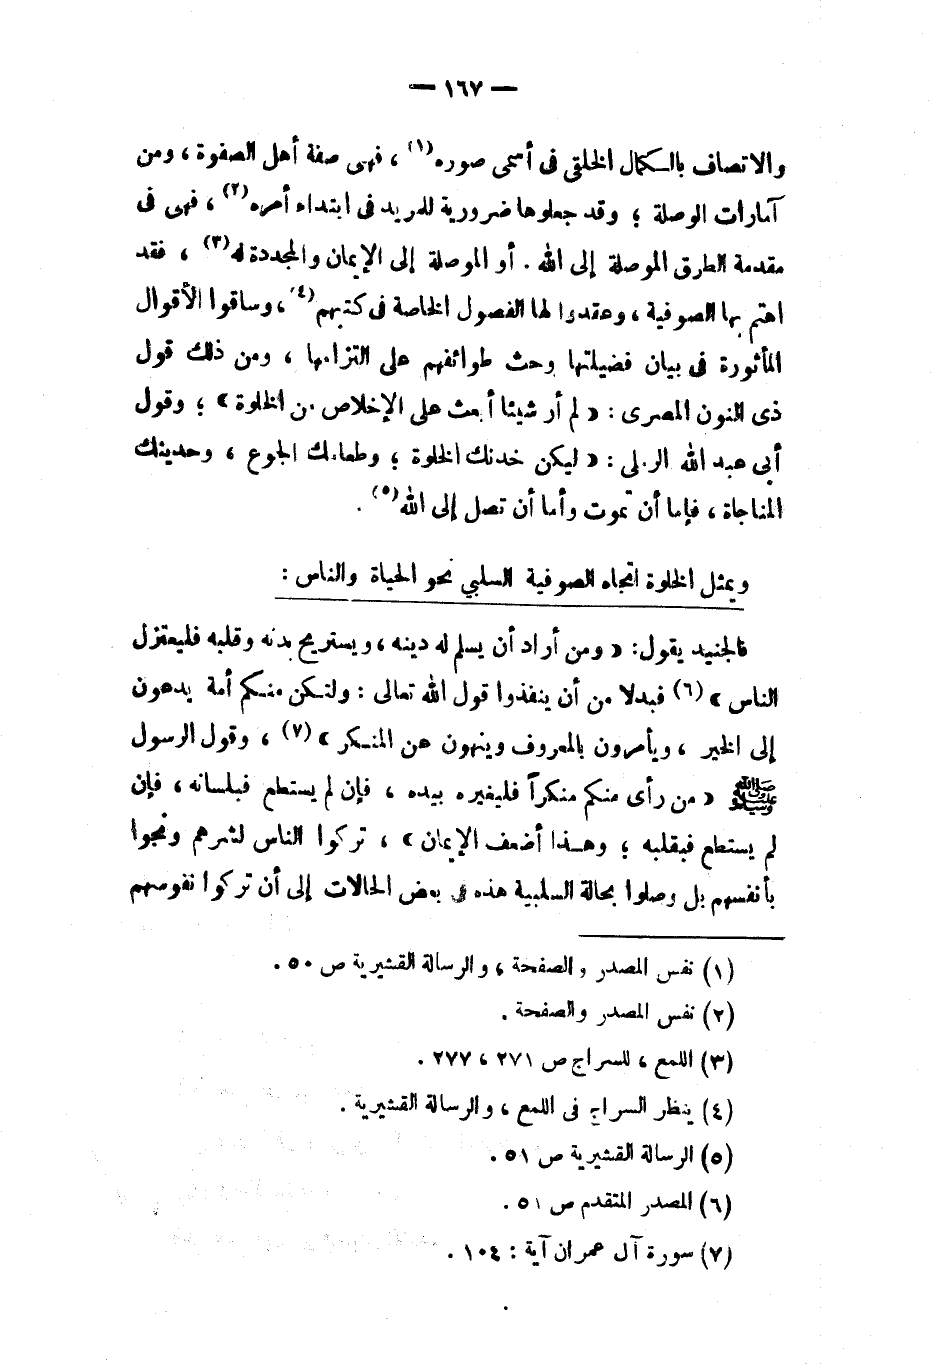 — ١٦٧ —
والاتصاف بالكمال الخلقى فى أسمى صوره(١) ، فهى صفة أهل الصفوة ، ومن
آمارات الوصلة ؛ وقد جعلوها ضرورية للمريد فى ابتداء أمره(٢) ، فهى فى
مقدمة الطرق الموصلة إلى الله . أو الموصلة إلى الإيمان والمجددة له(٣) ، فقد
اهتم بها الصوفية ، وعقدوا لها الفصول الخاصة فى كتبهم(٤) ، وساقوا الأقوال
المأثورة فى بيان فضيلتها وحث طوائفهم على التزامها ، ومن ذلك قول
ذى النون المصرى : « لم أر شيئا أبعث على الإخلاص من الخلوة » ؛ وقول
أبى عبد الله الرملى : « ليكن خدنك الخلوة ؛ وطعامك الجوع ، وحديثك
المناجاة ، فإما أن تموت وأما أن تصل إلى الله(٥) .
ويمثل الخلوة اتجاه الصوفية السلبي نحو الحياة والناس :
فالجنيد يقول : « ومن أراد أن يسلم له دينه ، ويستريح بدنه وقلبه فليعتزل
الناس » (٦) فبدلا من أن ينفذوا قول الله تعالى : ولتكن منكم أمة يدعون
إلى الخير ، ويأمرون بالمعروف وينهون عن المنكر » (٧) ، وقول الرسول
ﷺ « من رأى منكم منكراً فليغيره بيده ، فإن لم يستطع فبلسانه ، فإن
لم يستطع فبقلبه ؛ وهذا أضعف الإيمان » ، تركوا الناس لشرهم ونجوا
بأنفسهم بل وصلوا بحالة السلبية هذه فى بعض الحالات إلى أن تركوا نفوسهم
(١) نفس المصدر والصفحة ، والرسالة القشيرية ص ٥٠ .
(٢) نفس المصدر والصفحة .
(٣) اللمع ، للسراج ص ٢٧١ ، ٢٧٧ .
(٤) ينظر السراج فى اللمع ، والرسالة القشيرية .
(٥) الرسالة القشيرية ص ٥١ .
(٦) المصدر المتقدم ص ٥١ .
(٧) سورة آل عمران آية : ١٠٤ .